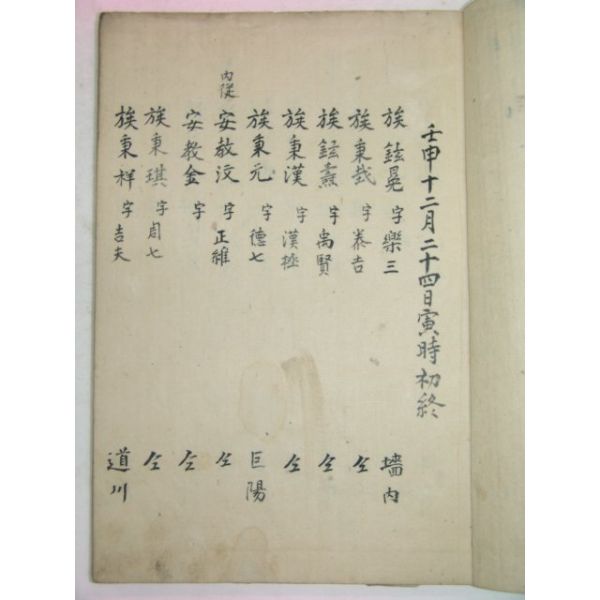 壬申十二月二十四日寅時初終
族鉉晃 字樂三 墻內
族秉哉 字泰吉 仝
族鉉燾 字禹賢 仝
族秉漢 字漢極 仝
族秉元 字德七 巨陽
內從 安敎汶 字正維 仝
安敎金 字 仝
族秉琪 字周七 仝
族秉祥 字吉夫 道川